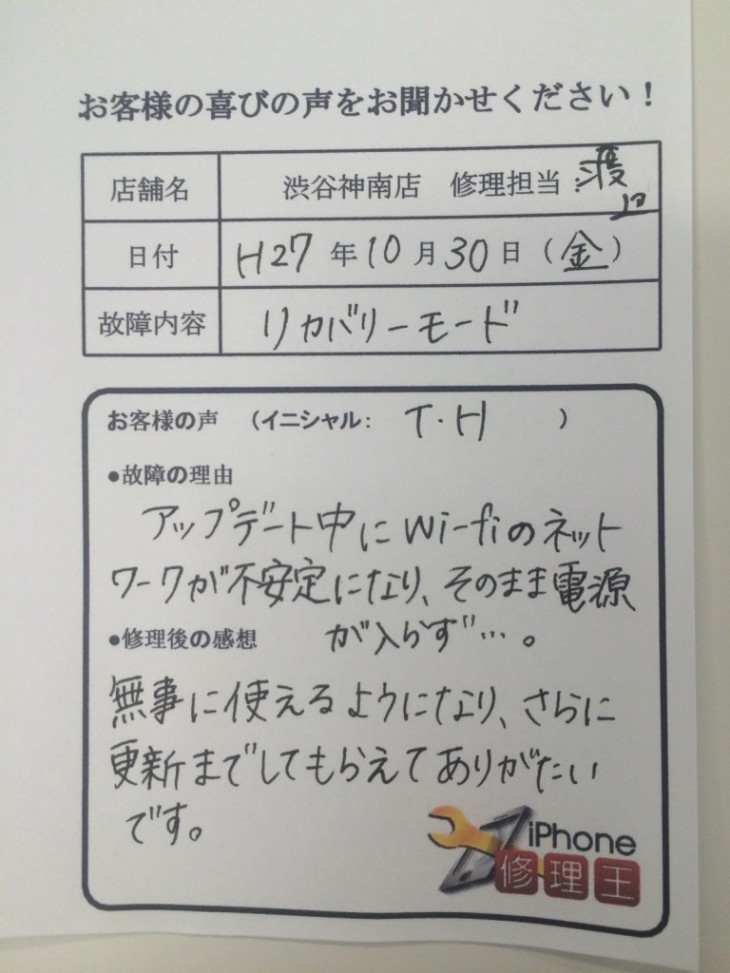 お客様の喜びの声をお聞かせください！
店舗名 渋谷神南店 修理担当:渡辺
日付 H27年10月30日（金）
故障内容 リカバリーモード
お客様の声 （イニシャル： T・H ）
●故障の理由
アップデート中にWi-fiのネット
ワークが不安定になり、そのまま電源
が入らず…。
●修理後の感想
無事に使えるようになり、さらに
更新までしてもらえてありがたい
です。
iPhone
修理王